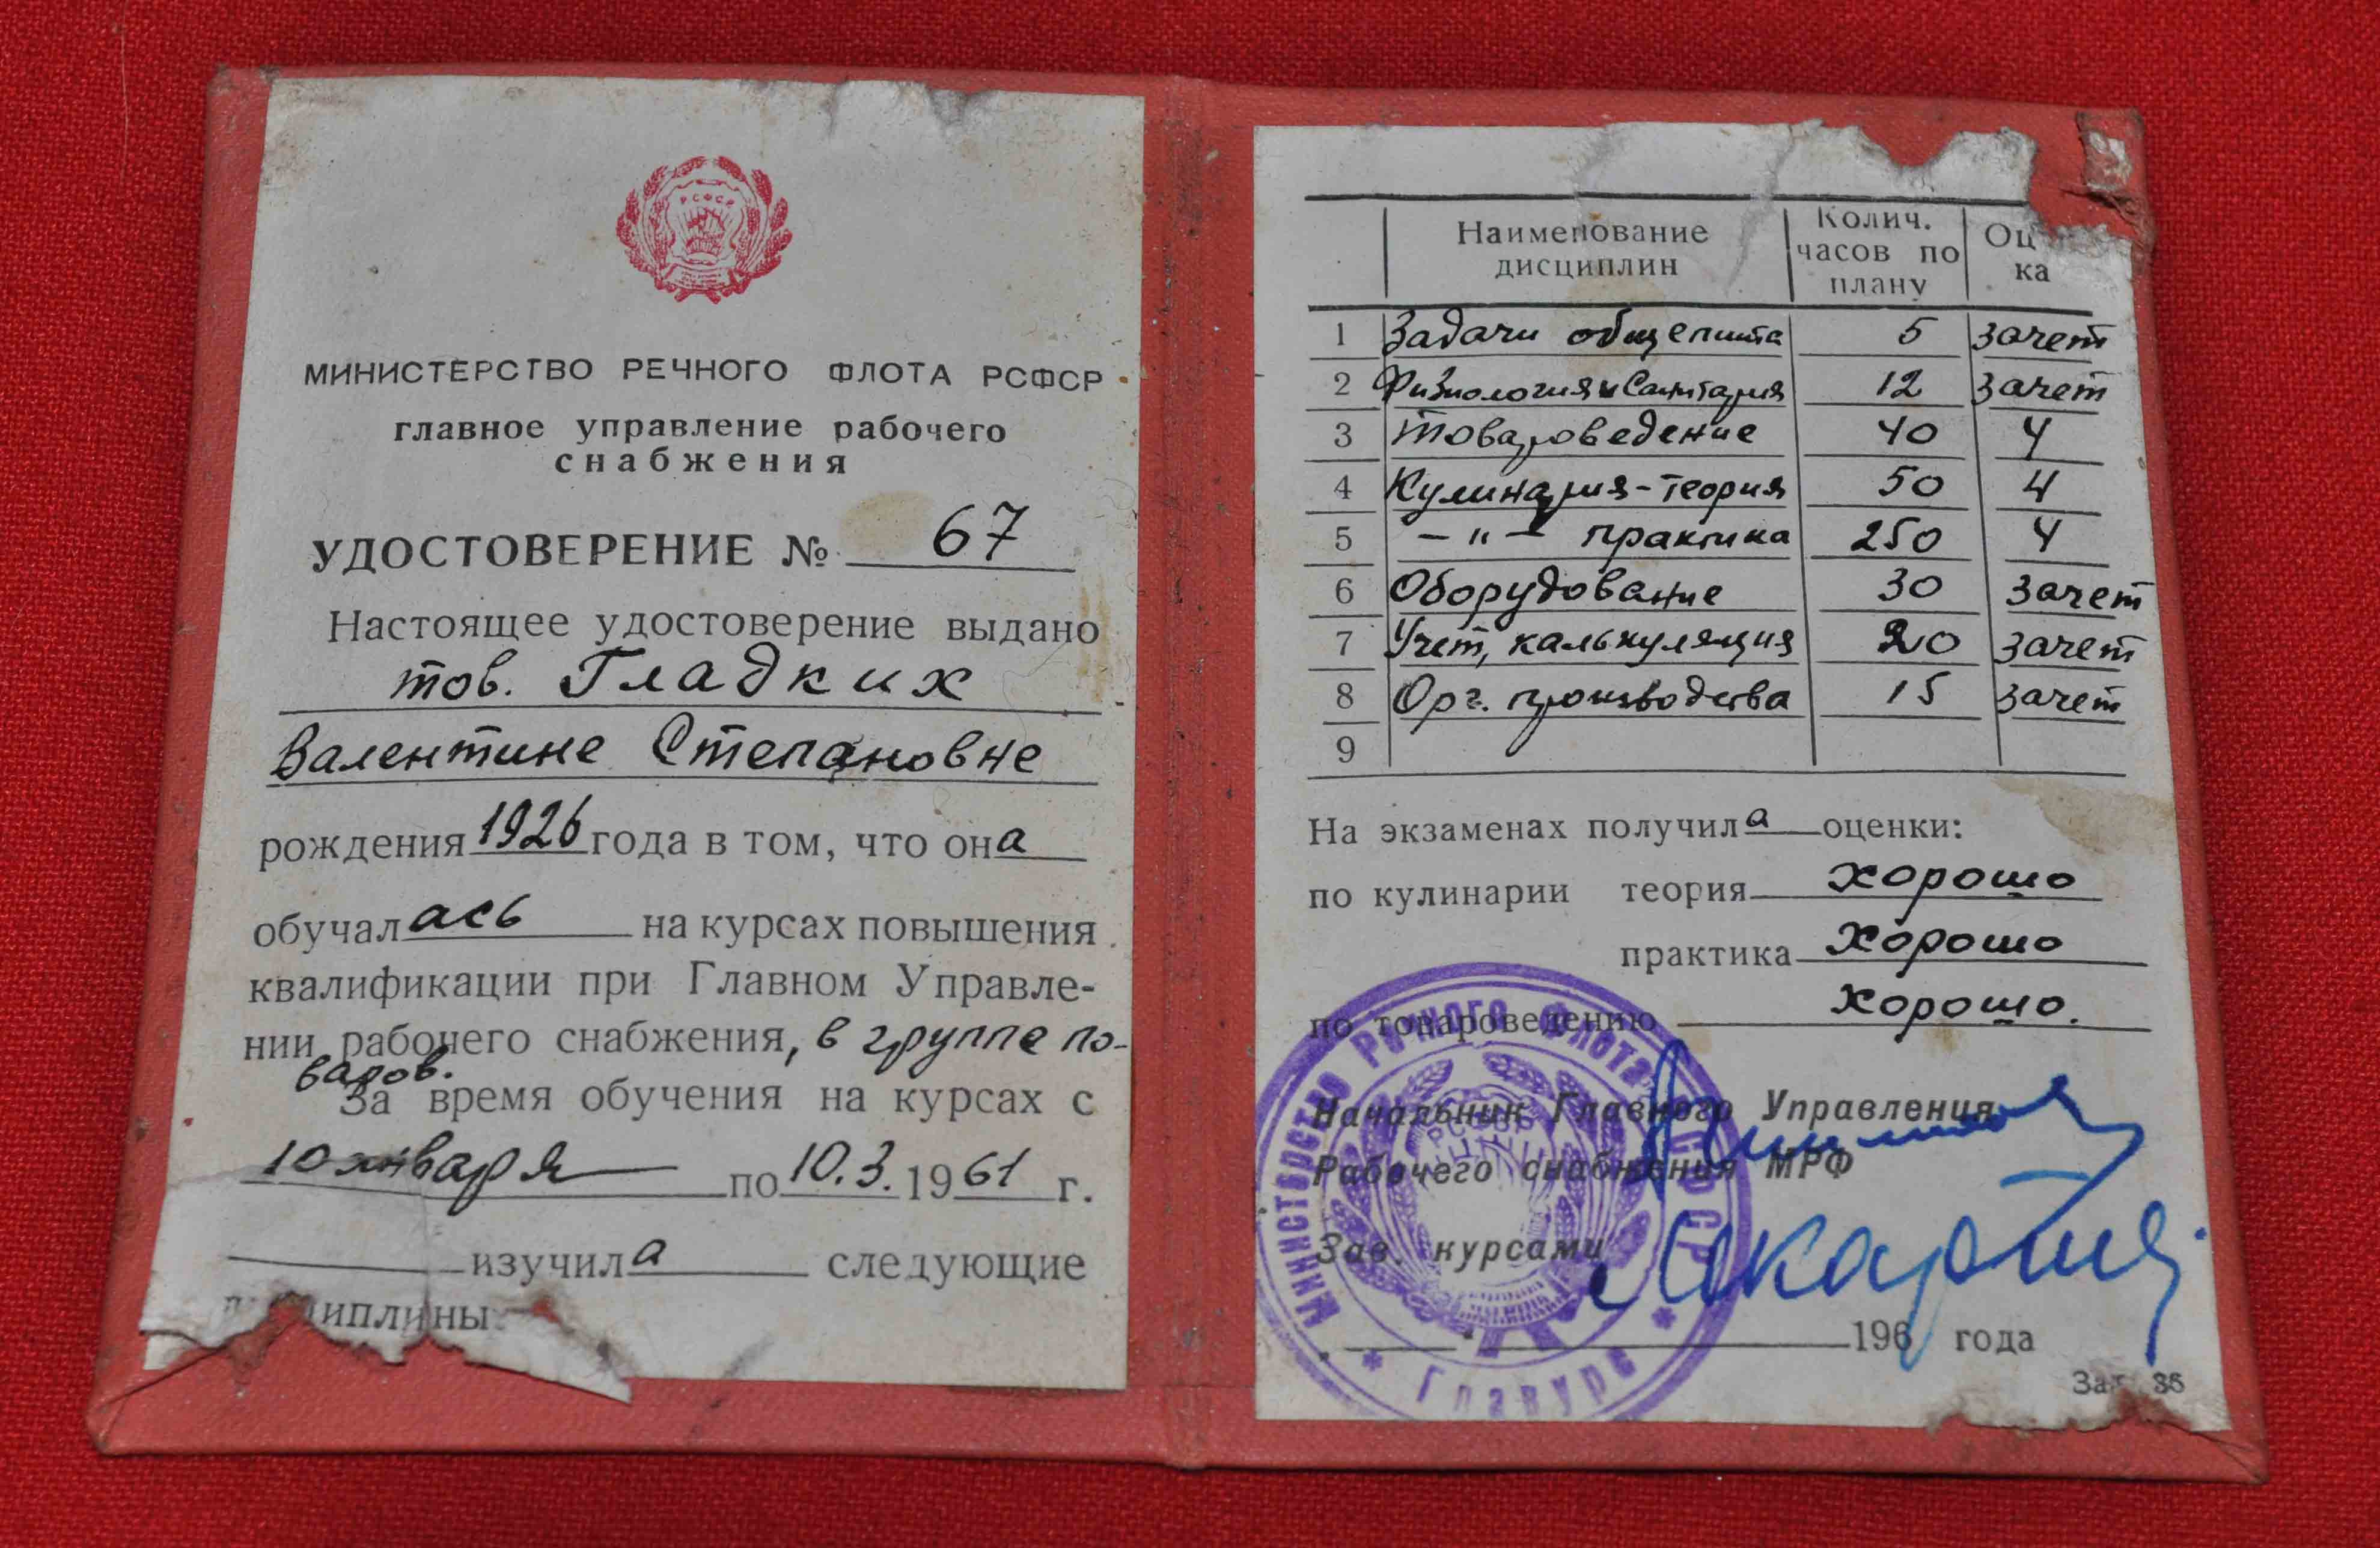 РСФСР
МИНИСТЕРСТВО РЕЧНОГО ФЛОТА РСФСР
главное управление рабочего
снабжения
УДОСТОВЕРЕНИЕ № 67
Настоящее удостоверение выдано
тов. Гладких
Валентине Степановне
рождения 1926 года в том, что она
обучалась на курсах повышения
квалификации при Главном Управле-
нии рабочего снабжения, в группе по-
варов.
За время обучения на курсах с
10 января по 10.3.1961 г.
изучила следующие
дисциплины:
Наименование дисциплин Колич. часов по плану Оценка
1 Задачи общепита 5 зачет
2 Физиология и Санитария 12 зачет
3 Товароведение 40 4
4 Кулинария - теория 50 4
5 - " - практика 250 4
6 Оборудование 30 зачет
7 Учет, калькуляция 20 зачет
8 Орг. производства 15 зачет
9
На экзаменах получила оценки:
по кулинарии теория хорошо
практика хорошо
по товароведению хорошо.
Начальник Главного Управления
Рабочего снабжения МРФ
Зав. курсами
196 года
МИНИСТЕРСТВО РЕЧНОГО ФЛОТА РСФСР * Главурс *